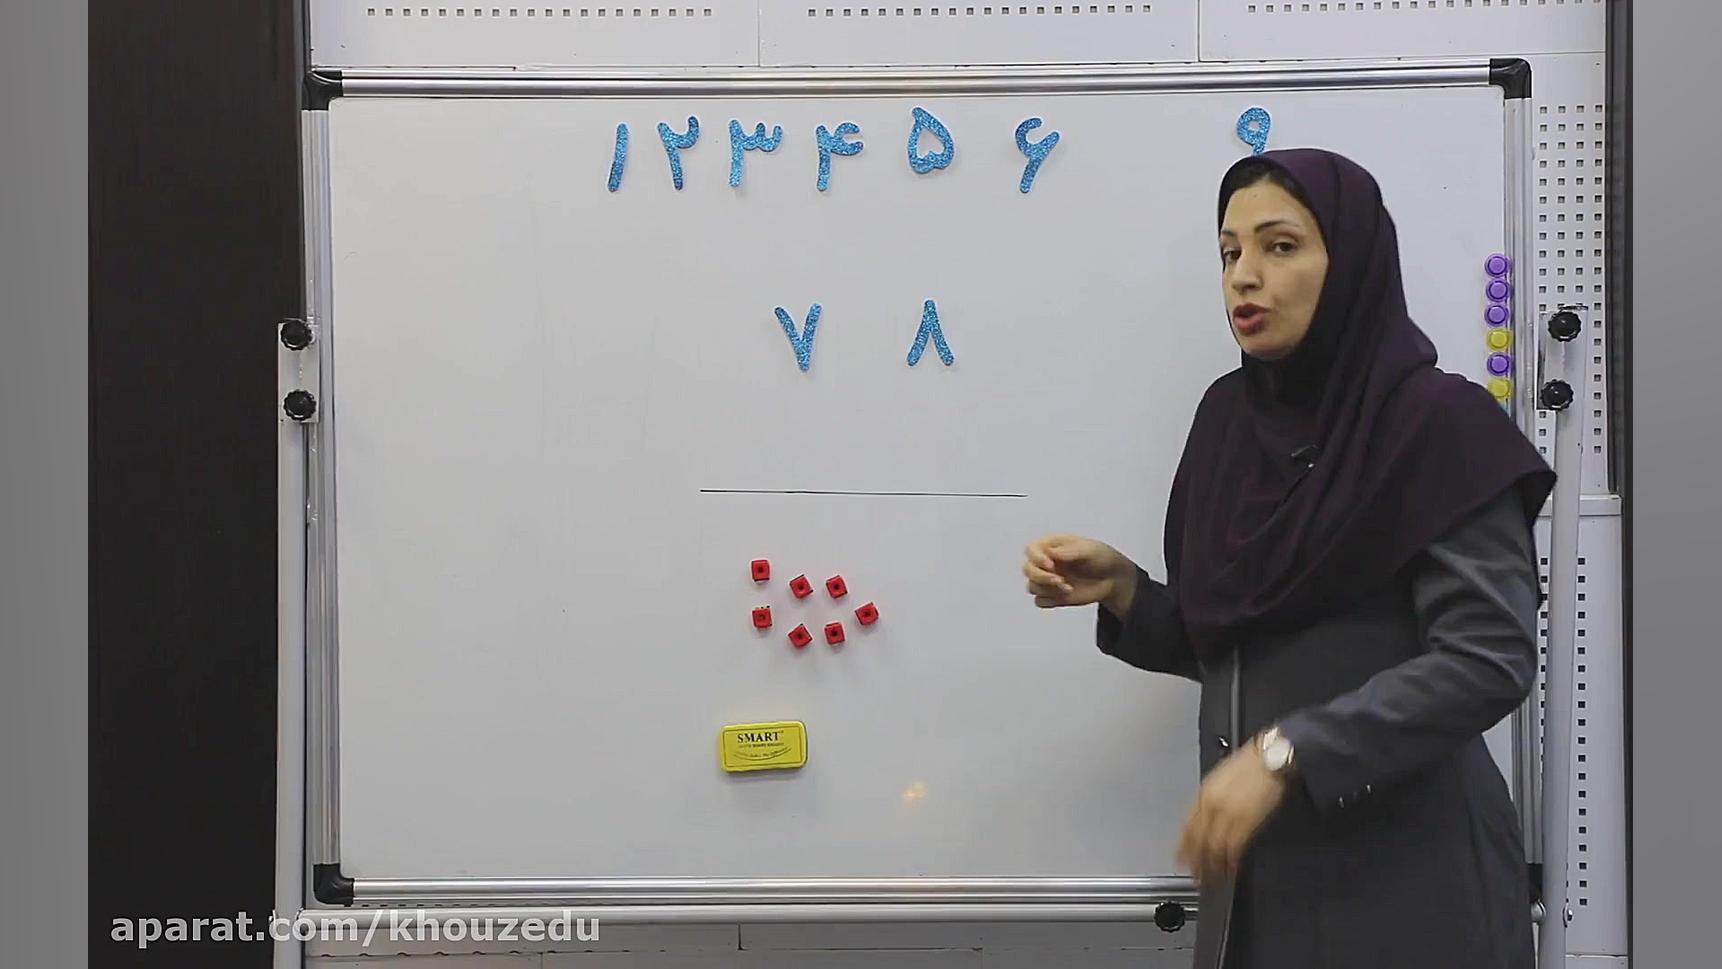 ۱ ۲ ۳ ۴ ۵ ۶ ۹
۷ ۸
SMART
aparat.com/khouzedu